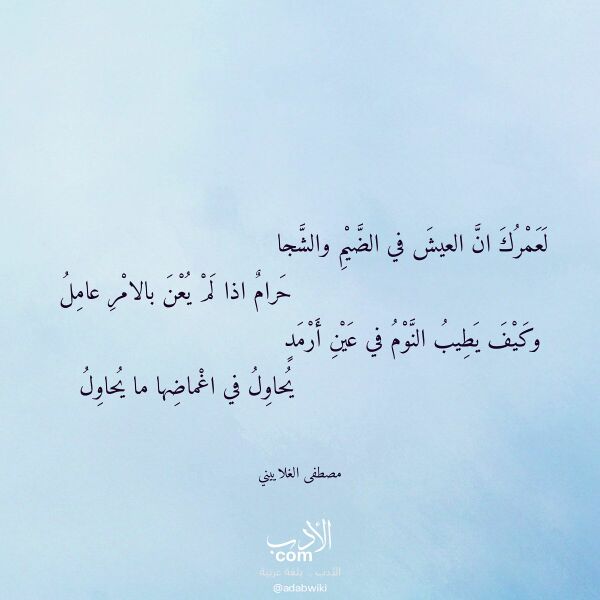 لَعَمْرُكَ انَّ العيشَ في الضَّيْمِ والشَّجا
حَرامٌ اذا لَمْ يُعْنَ بالامْرِ عامِلُ
وكَيْفَ يَطِيبُ النَّوْمُ في عَيْنِ أَرْمَدٍ
يُحاوِلُ في اغْماضِها ما يُحاوِلُ
مصطفى الغلاييني
الأدب
com
الأدب .. بلغة عربية
@adabwiki